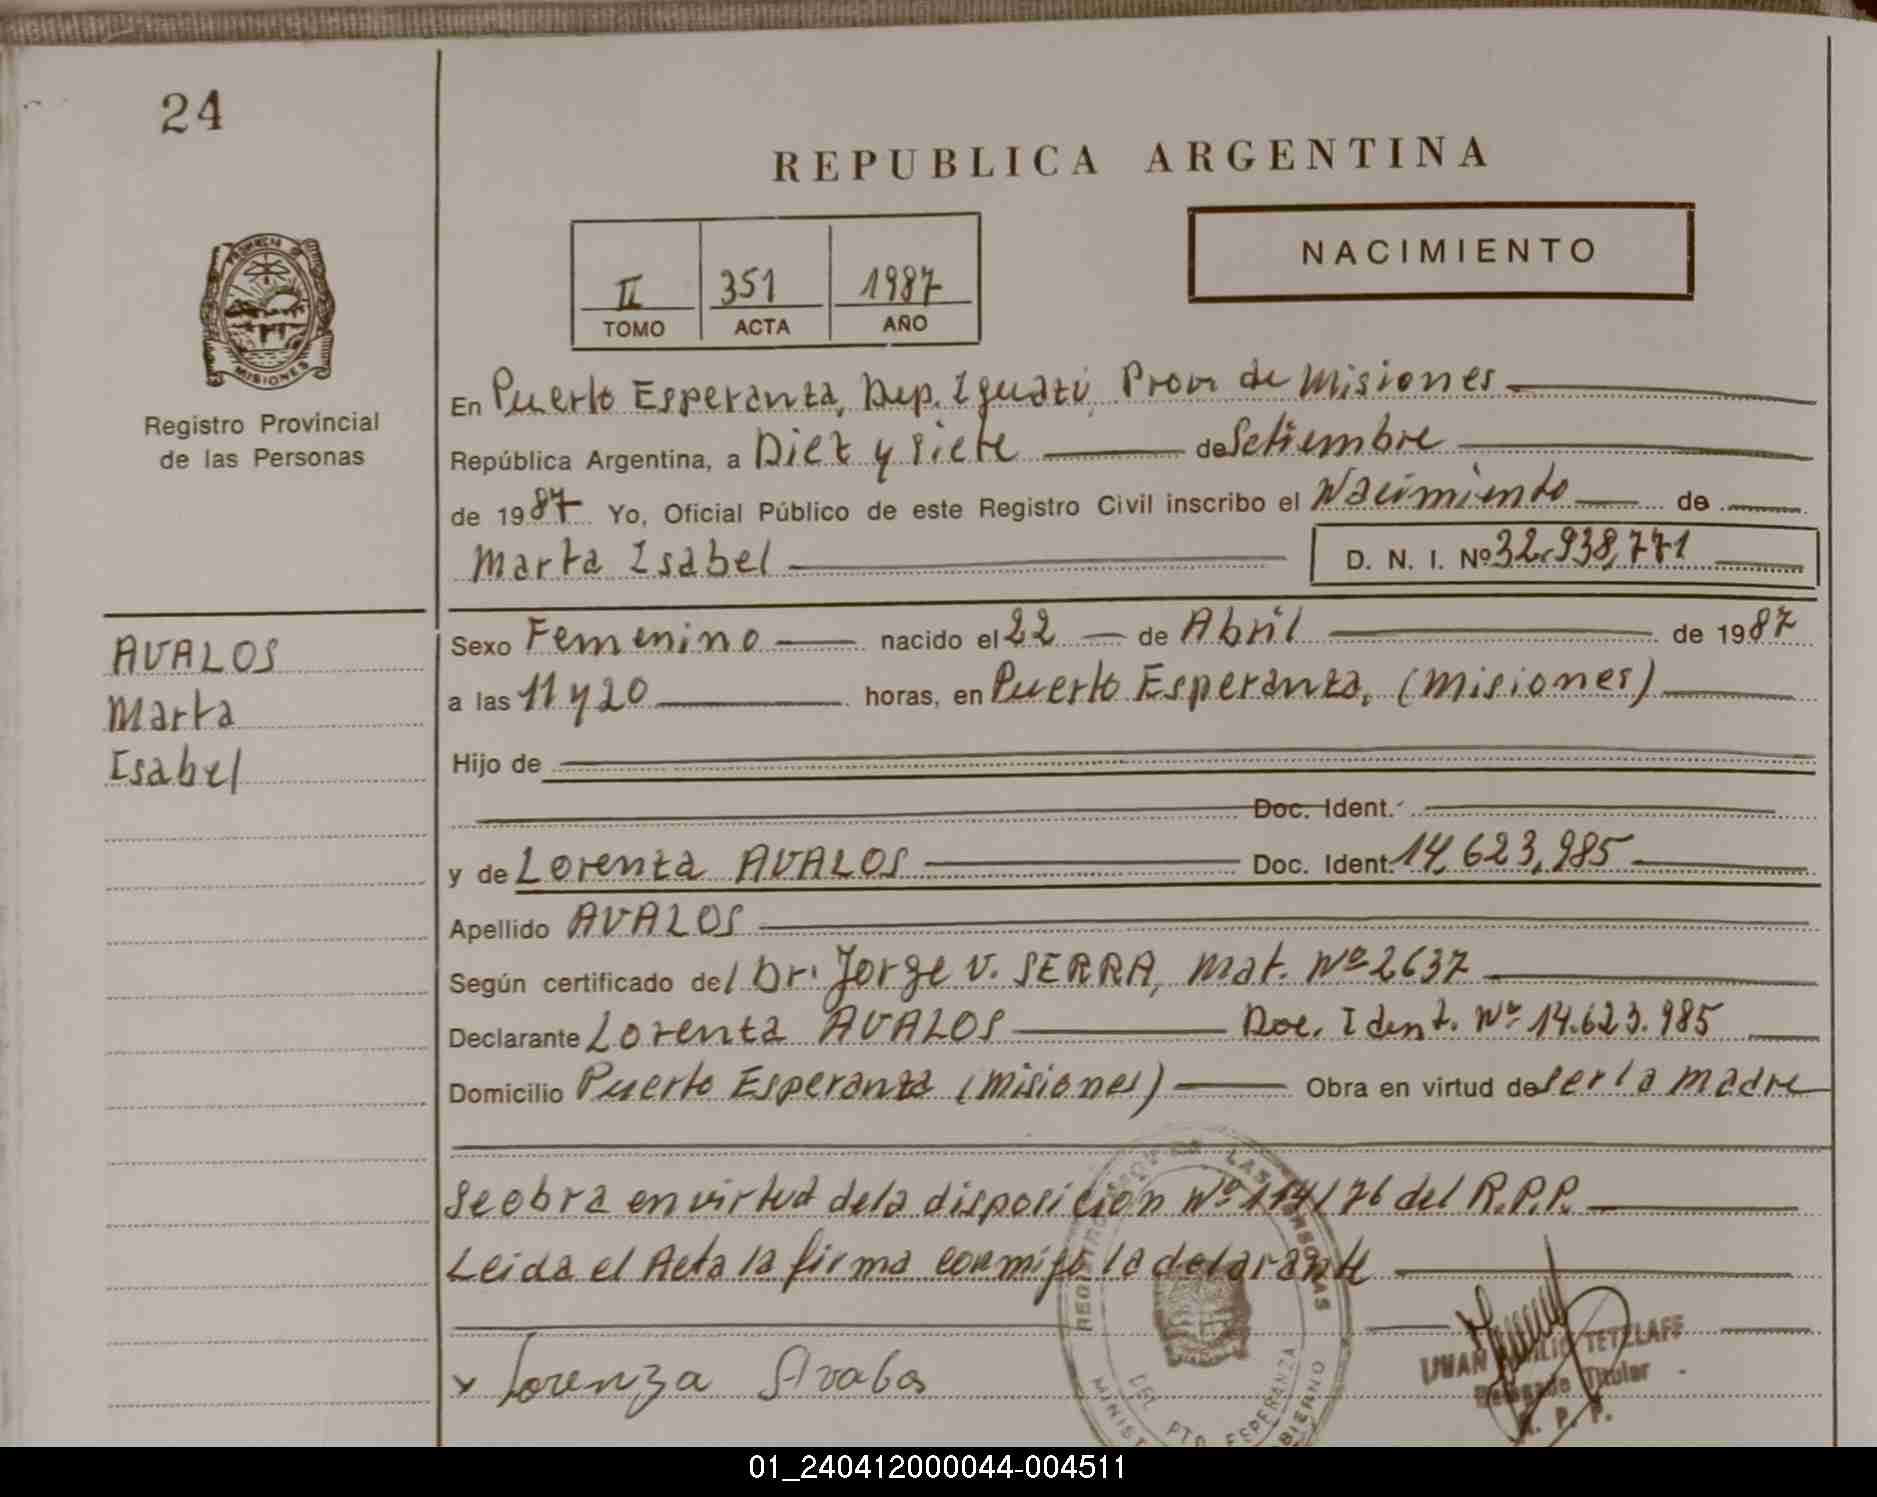 24
REPUBLICA ARGENTINA
NACIMIENTO
II 351 1987
TOMO ACTA AÑO
PROVINCIA DE
MISIONES
Registro Provincial
de las Personas
En Puerto Esperanza, Dep. Iguazú, Prov. de Misiones
República Argentina, a Diez y siete de Setiembre
de 1987 Yo, Oficial Público de este Registro Civil inscribo el Nacimiento de
Marta Isabel D. N. I. Nº 32.938,771
AVALOS
Marta
Isabel
Sexo Femenino nacido el 22 de Abril de 1987
a las 11 y 20 horas, en Puerto Esperanza, (Misiones)
Hijo de
Doc. Ident.
y de Lorenza AVALOS Doc. Ident. 14,623,985
Apellido AVALOS
Según certificado del Dr. Jorge V. SERRA, Mat. Nº 2637
Declarante Lorenza AVALOS Doc. Ident. Nº 14.623.985
Domicilio Puerto Esperanza (Misiones) Obra en virtud de ser la madre
Se obra en virtud de la disposición Nº 114/76 del R.P.P.
Leida el Acta la firma conmigo la delarante
x Lorenza Avalos
LAS PERSONAS
DEL PTO ESPERANZA
TETZLAFF
Delegado Titular
R. P. P.
01_240412000044-004511